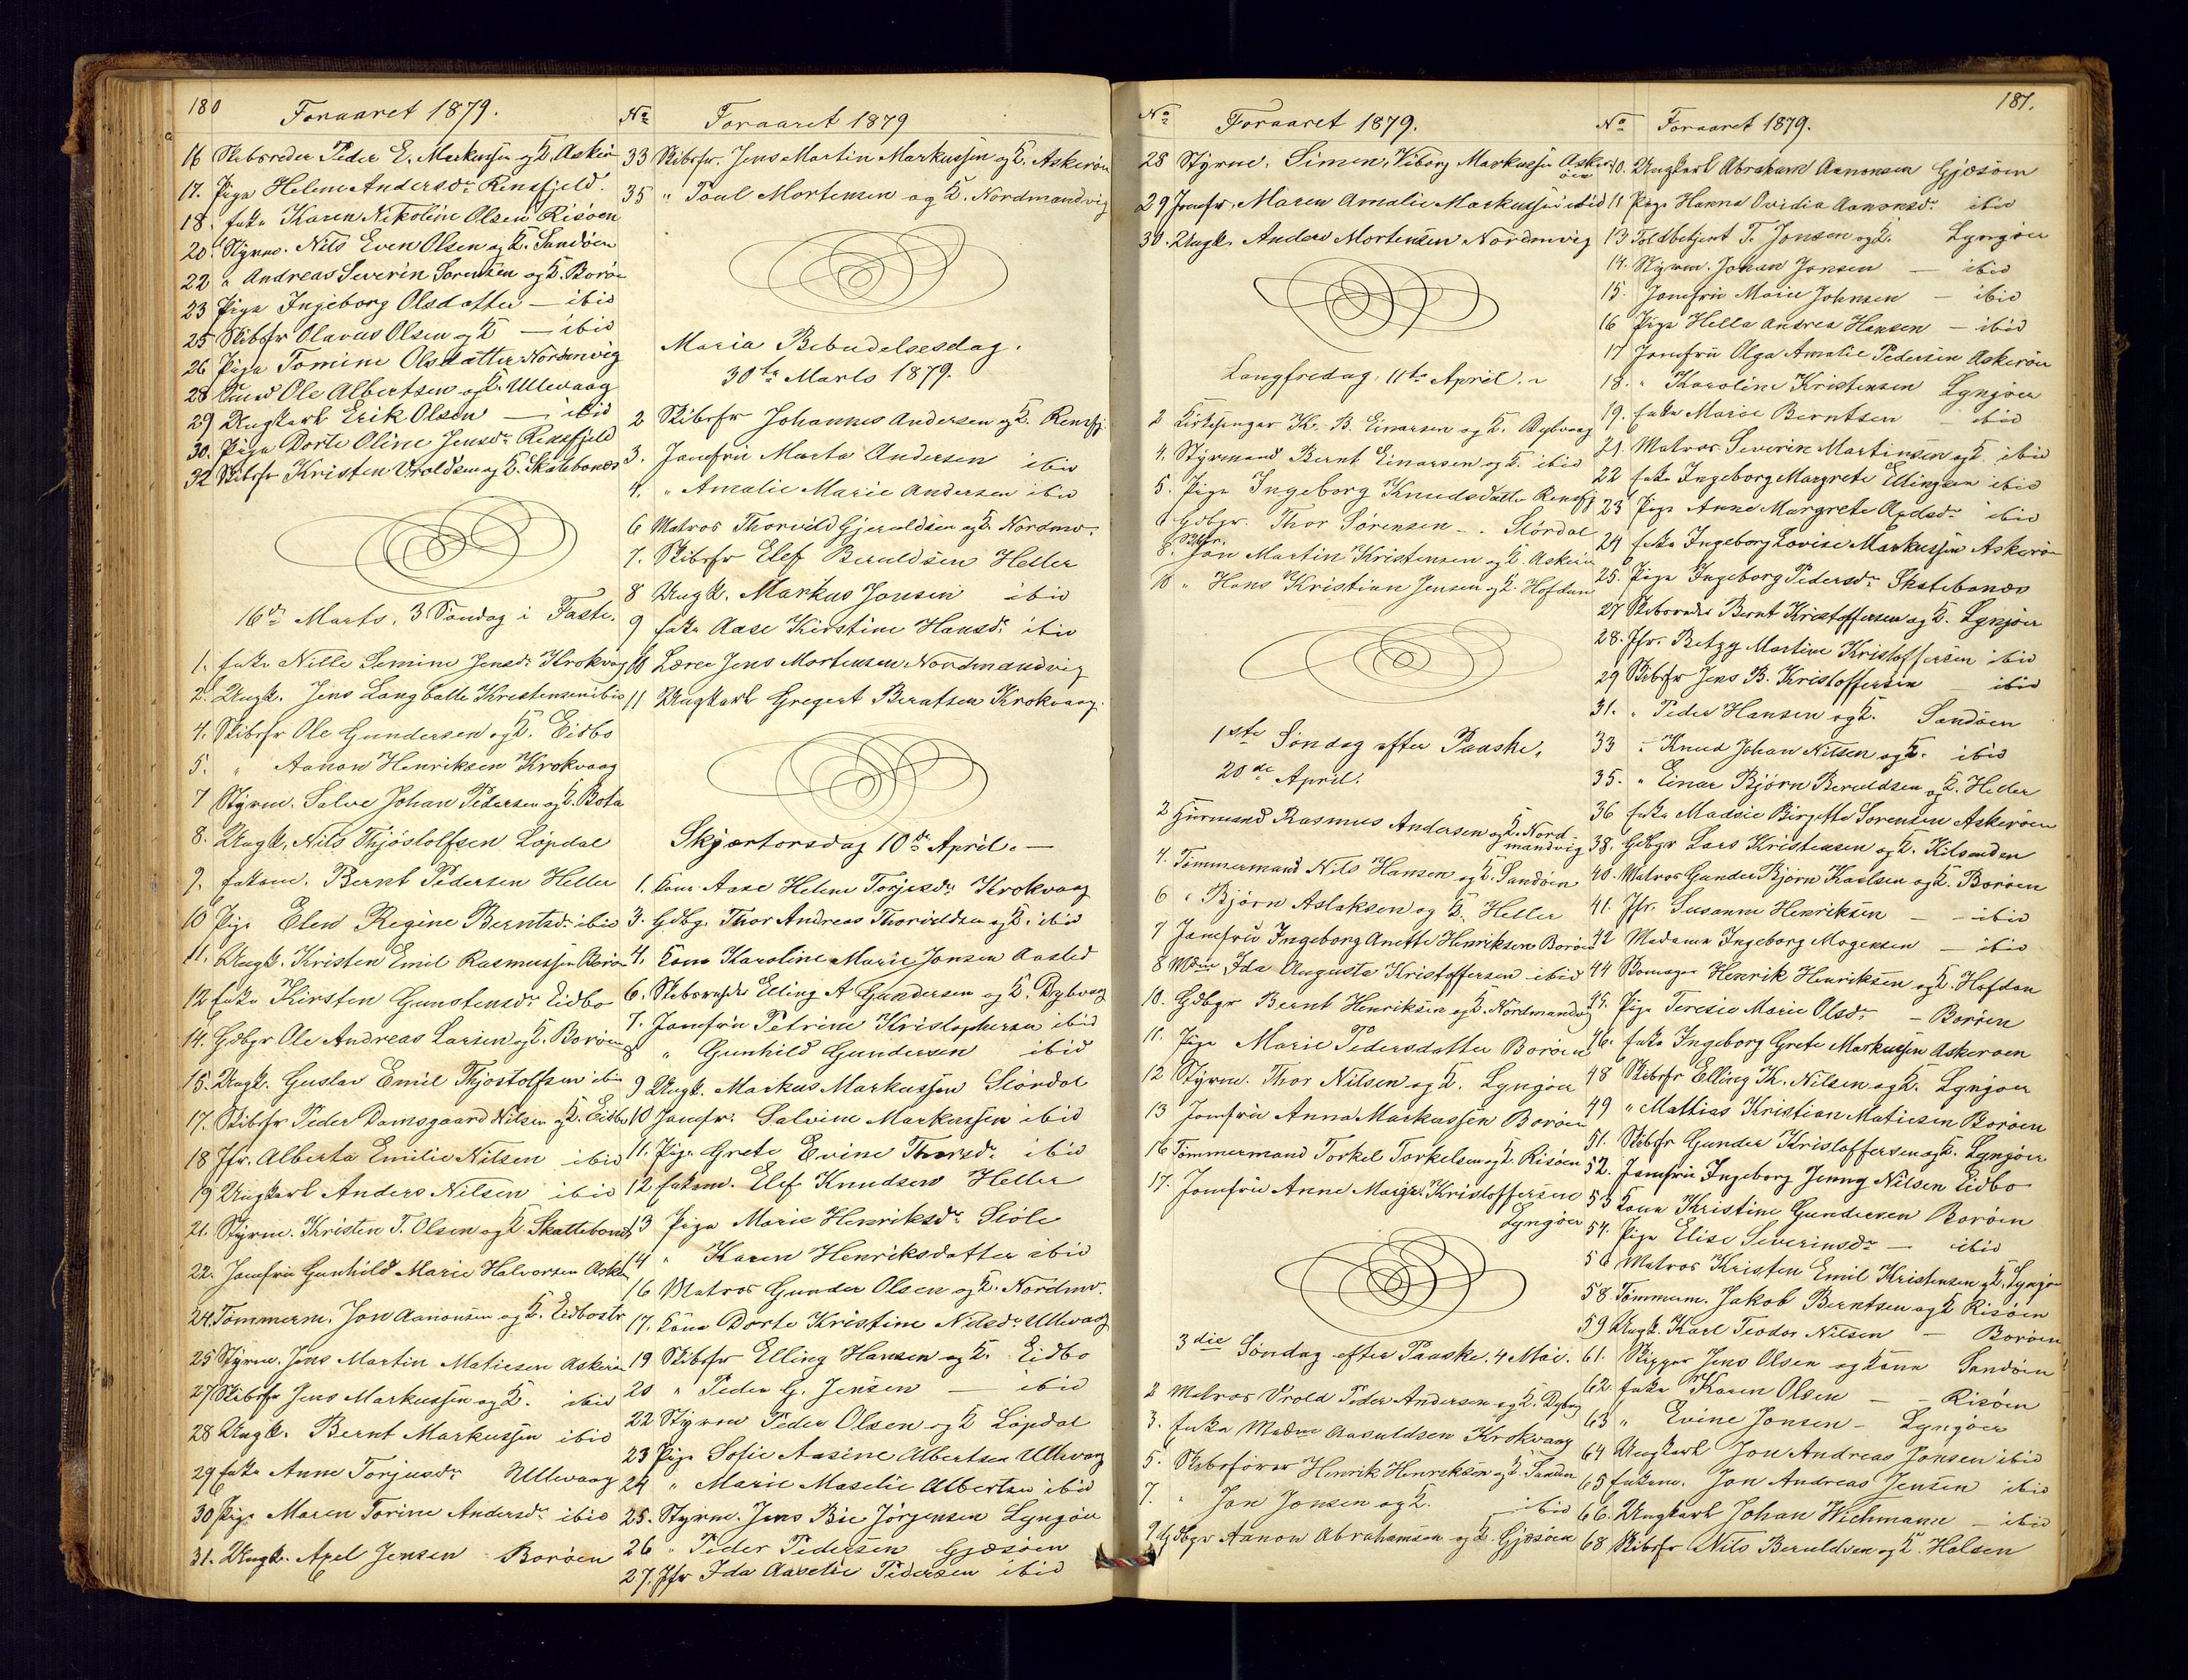 180
Foraaret 1879.
16 Skibsreder Peder E. Markussen og K. Askerø
17. Pige Helene Andersdr. Rensfjeld.
18. Enke Karen Nikoline Olsen Risøen
20. Styrm. Nils Even Olsen og K. Sandøen
22 " Andreas Severin Sørensen og K. Borøe
23 Pige Ingeborg Olsdatter — ibid
25 Skibsfr Olavus Olsen og K — ibid
26 Pige Tomine Olsdatter Nordmvig
28 Ole Albertsen og K. Ullevaag
29 Ungkarl Erik Olsen — ibid
30. Pige Dorte Oline Jensdr. Rensfjeld
32 Skibsfr Kristen Vroldsen og K. Skatebonæs
16de Marts. 3 Søndag i Faste.
1. Enke Nille Semine Jensdr. Krokvaag
2. Ungk. Jens Langballe Kristensen ibid
4. Skibsfr Ole Gundersen og K. Eidbo
5. " Aanon Henriksen Krokvaag
7 Styrm. Salve Johan Pedersen og K. Bota
8. Ungk. Nils Thjøstolfsen Løpdal
9. Enkem. Bernt Pedersen Heller
10 Pige Elen Regine Berntsdr. ibid
11. Ungk. Kristen Emil Rasmussen Borøe
12 Enke Kirsten Gunstensdr. Eidbo
14. Gdbgr Ole Andreas Larsen og K. Borøen
15. Ungk. Gustav Emil Thjostolfsen ibid
17. Skibsfr Peder Damsgaard Nilsen og K. Eidbo
18 Jfr. Alberta Emilie Nilsen ibid
19 Ungkarl Anders Nilsen ibid
21. Styrm. Kristen T. Olsen og K Skattebonæs
22. Jomfru Gunhild Marie Halvorsen Ask
24. Tømmerm. Jon Aanonsen og K. Eidbostr
25 Styrm. Jens Martin Matiesen Askerø
27 Skibsfr Jens Markussen og K. ibid
28 Ungk. Bernt Markussen ibid
29 Enke Anne Torjusdr. Ullevaag
30 Pige Maren Torine Andersdr. ibid
31. Ungk. Axel Jensen Borøen
No Foraaret 1879
33 Skibsfr. Jens Martin Markussen og K. Askerøen
35 " Paul Mortensen og K. Nordmandvig
Maria Bebudelsesdag.
30te Marts 1879.
2 Skibsfr Johannes Andersen og K. Rensfj.
3. Jomfru Marta Andersen ibid
4. " Amalie Marie Andersen ibid
6 Matros Thorvild Gjeruldsen og K. Nordmv.
7. Skibsfr Elef Beruldsen Heller
8 Ungk. Markus Jonsen ibid
9 Enke Aase Kirstine Hansdr. ibid
10 Lærer Jens Mortensen Nordmandvig
11 Ungkarl Gregert Berntsen Krokvaag.
Skjærtorsdag 10de April. —
1. Kone Aase Helene Torjesdr. Krokvaag
3. Gdbg. Thor Andreas Thorvildsen og K. ibid
4. Kone Karoline Marie Jonsen Aasted
6. Skibsreder Elling A Gundersen og K. Dybvaag
7. Jomfru Petrine Kristophersen ibid
8 " Gunhild Gundersen ibid
9 Ungk. Markus Markussen Slørdal
10 Jomfr. Salvine Markussen ibid
11. Pige Grete Evine Thorsdr. ibid
12. Enkem. Elef Knudsen Heller
13 Pige Marie Henriksdr. Støle
14 " Karen Henriksdatter ibid
16 Matros Gunder Olsen og K. Nordmv.
17. Kone Dorte Kristine Nilsdr. Ullevaag
19 Skibsfr Elling Hansen og K. Eidbo
20 " Peder G. Jensen — ibid
22 Styrm Peder Olsen og K Løpdal
23 Pige Sofie Aasine Albertsen Ullevaag
24 " Marie Maselie Albertsen ibid
25. Styrm. Jens Bie Jørgensen Lyngøer
26 " Peder Pedersen Gjæsøen
27. Jfr Ida Aavelie Pedersen ibid
No Foraaret 1879.
28 Styrm. Simen Viborg Markussen Askerøen
29 Jomfr. Maren Amalie Markussen ibid
30. Ungk. Anders Mortensen Nordmvig
Langfredag, 11te April.
2 Kirkesanger K. B. Einarsen og K. Dybvaag
4. Styrmand Bernt Einarsen og K. ibid
5. Pige Ingeborg Knudsdatter Rensfj
6 Gdbgr. Thor Sørensen — Slørdal
8. Skbfr. Jon Martin Kristensen og K. Askerøe
10 " Hans Kristian Jensen og K. Hofdan
1ste Søndag efter Paaske,
20de April.
2 Gjørmand Rasmus Andersen og K. Nordmandvig
4. Tømmermand Nils Hansen og K. Sandøen
6 " Bjørn Aslaksen og K. Heller
7 Jomfru Ingeborg Anette Henriksen Borøen
8 Mdm Ida Augusta Kristoffersen ibid
10. Gdbgr Bernt Henriksen og K. Nordmandvig
11. Pige Marie Pedersdatter Borøen
12 Styrm. Thor Nilsen og K. Lyngøer
13 Jomfru Anna Markussen Borøen
16 Tømmermand Torkel Torkelsen og K. Risøen
17. Jomfru Anne Margr. Kristoffersen
Lyngøer
3die Søndag efter Paaske. 4 Mai.
2 Matros Vrold Peder Andersen og K. Dybvg
3. Enke Madme Aasuldsen Krokvaag
5. Skibsfører Henrik Henriksen og K. Sanden
7. " Jon Jonsen og K. — ibid
9 Gdbgr Aanon Abrahamsen og K. Gjæsøen
181.
No Foraaret 1879.
10. Ungkarl Abraham Aanonsen Gjæsøen
11 Pige Hanna Ovidia Aanonsdr. ibid
13 Toldbetjent T. Jonsen og K. Lyngøer
14. Styrm. Johan Jonsen — ibid
15. Jomfru Marie Johnsen — ibid
16 Pige Hella Andrea Hansen — ibid
17 Jomfru Olga Amalie Pedersen Askerøen
18. " Karoline Kristensen Lyngøer
19. Enke Maroe Berntsen ibid
21. Matros Severin Martinsen og K. ibid
22 Enke Ingeborg Margrete Ellingsen ibid
23 Pige Anne Margrete Axelsdr. ibid
24 Enke Ingeborg Lovise Markussen Askerøe
25. Pige Ingeborg Pedersdr. Skatebonæs
27 Skibsreder Bernt Kristoffersen og K. Lyngøer
28. Jfr. Betzy Martine Kristoffersen ibid
29 Skibsfr Jens B. Kristoffersen — ibid
31. " Peder Hansen og K. Sandøen
33 " Knud Johan Nilsen og K. ibid
35. " Einar Bjørn Beruldsen og K. Heller
36 Enke Madsie Birgitte Sorensen Askerøen
38. Gdbgr Lars Kristensen og K. Kilsanden
40. Matros Gunder Bjørn Karlsen og K. Borøen
41. Jfr. Susanne Henriksen — ibid
42 Madame Ingeborg Mogensen — ibid
44 Henrik Henriksen og K. Hofdan
45. Pige Teresie Marie Olsdr. — Borøen
46. Enke Ingeborg Grete Markussen Askerøen
48 Skibsfr Elling K. Nilsen og K. Lyngøer
49 " Mathias Kristian Matiesen Borøen
51. Skibsfr Gunder Kristoffersen og K. Lyngøer
52. Jomfru Ingeborg Jenny Nilsen Eidbo
53 Kone Kristine Gundersen Borøen
54. Pige Elise Severinsdr. — ibid
56 Matros Kristen Emil Kristensen og K. Lyngø
58. Tømmerm. Jakob Berntsen og K Risøen
59 Ungk. Karl Teodor Nilsen — Borøen
61. Skipper Jens Olsen og Kone Sandøen
62. Enke Karen Olsen — Risøen
63 " Evine Jonsen — Lyngøer
64 Ungkarl Jon Andreas Jonsen ibid
65 Enkem. Jon Andreas Jensen ibid
66. Ungkarl Johan Wichmann — ibid
68 Skibsfr Nils Beruldsen og K. Holsen